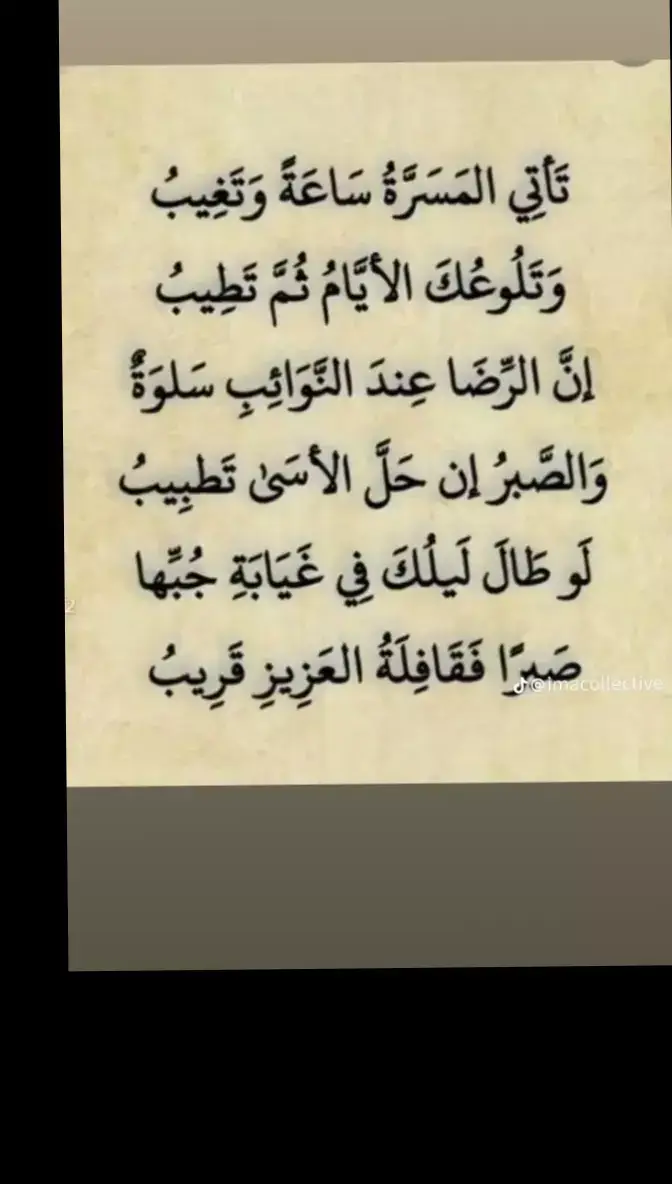 تَأتِي المَسَرَّةُ سَاعَةً وَتَغِيبُ
وَتَلُوعُكَ الأيَّامُ ثُمَّ تَطِيبُ
إنَّ الرِّضَا عِندَ النَّوَائِبِ سَلوَةٌ
وَالصَّبرُ إن حَلَّ الأسَىٰ تَطبِيبُ
لَو طَالَ لَيلُكَ فِي غَيَابَةِ جُبِّها
صَبرًا فَقَافِلَةُ العَزِيزِ قَرِيبُ
@imacollective
2